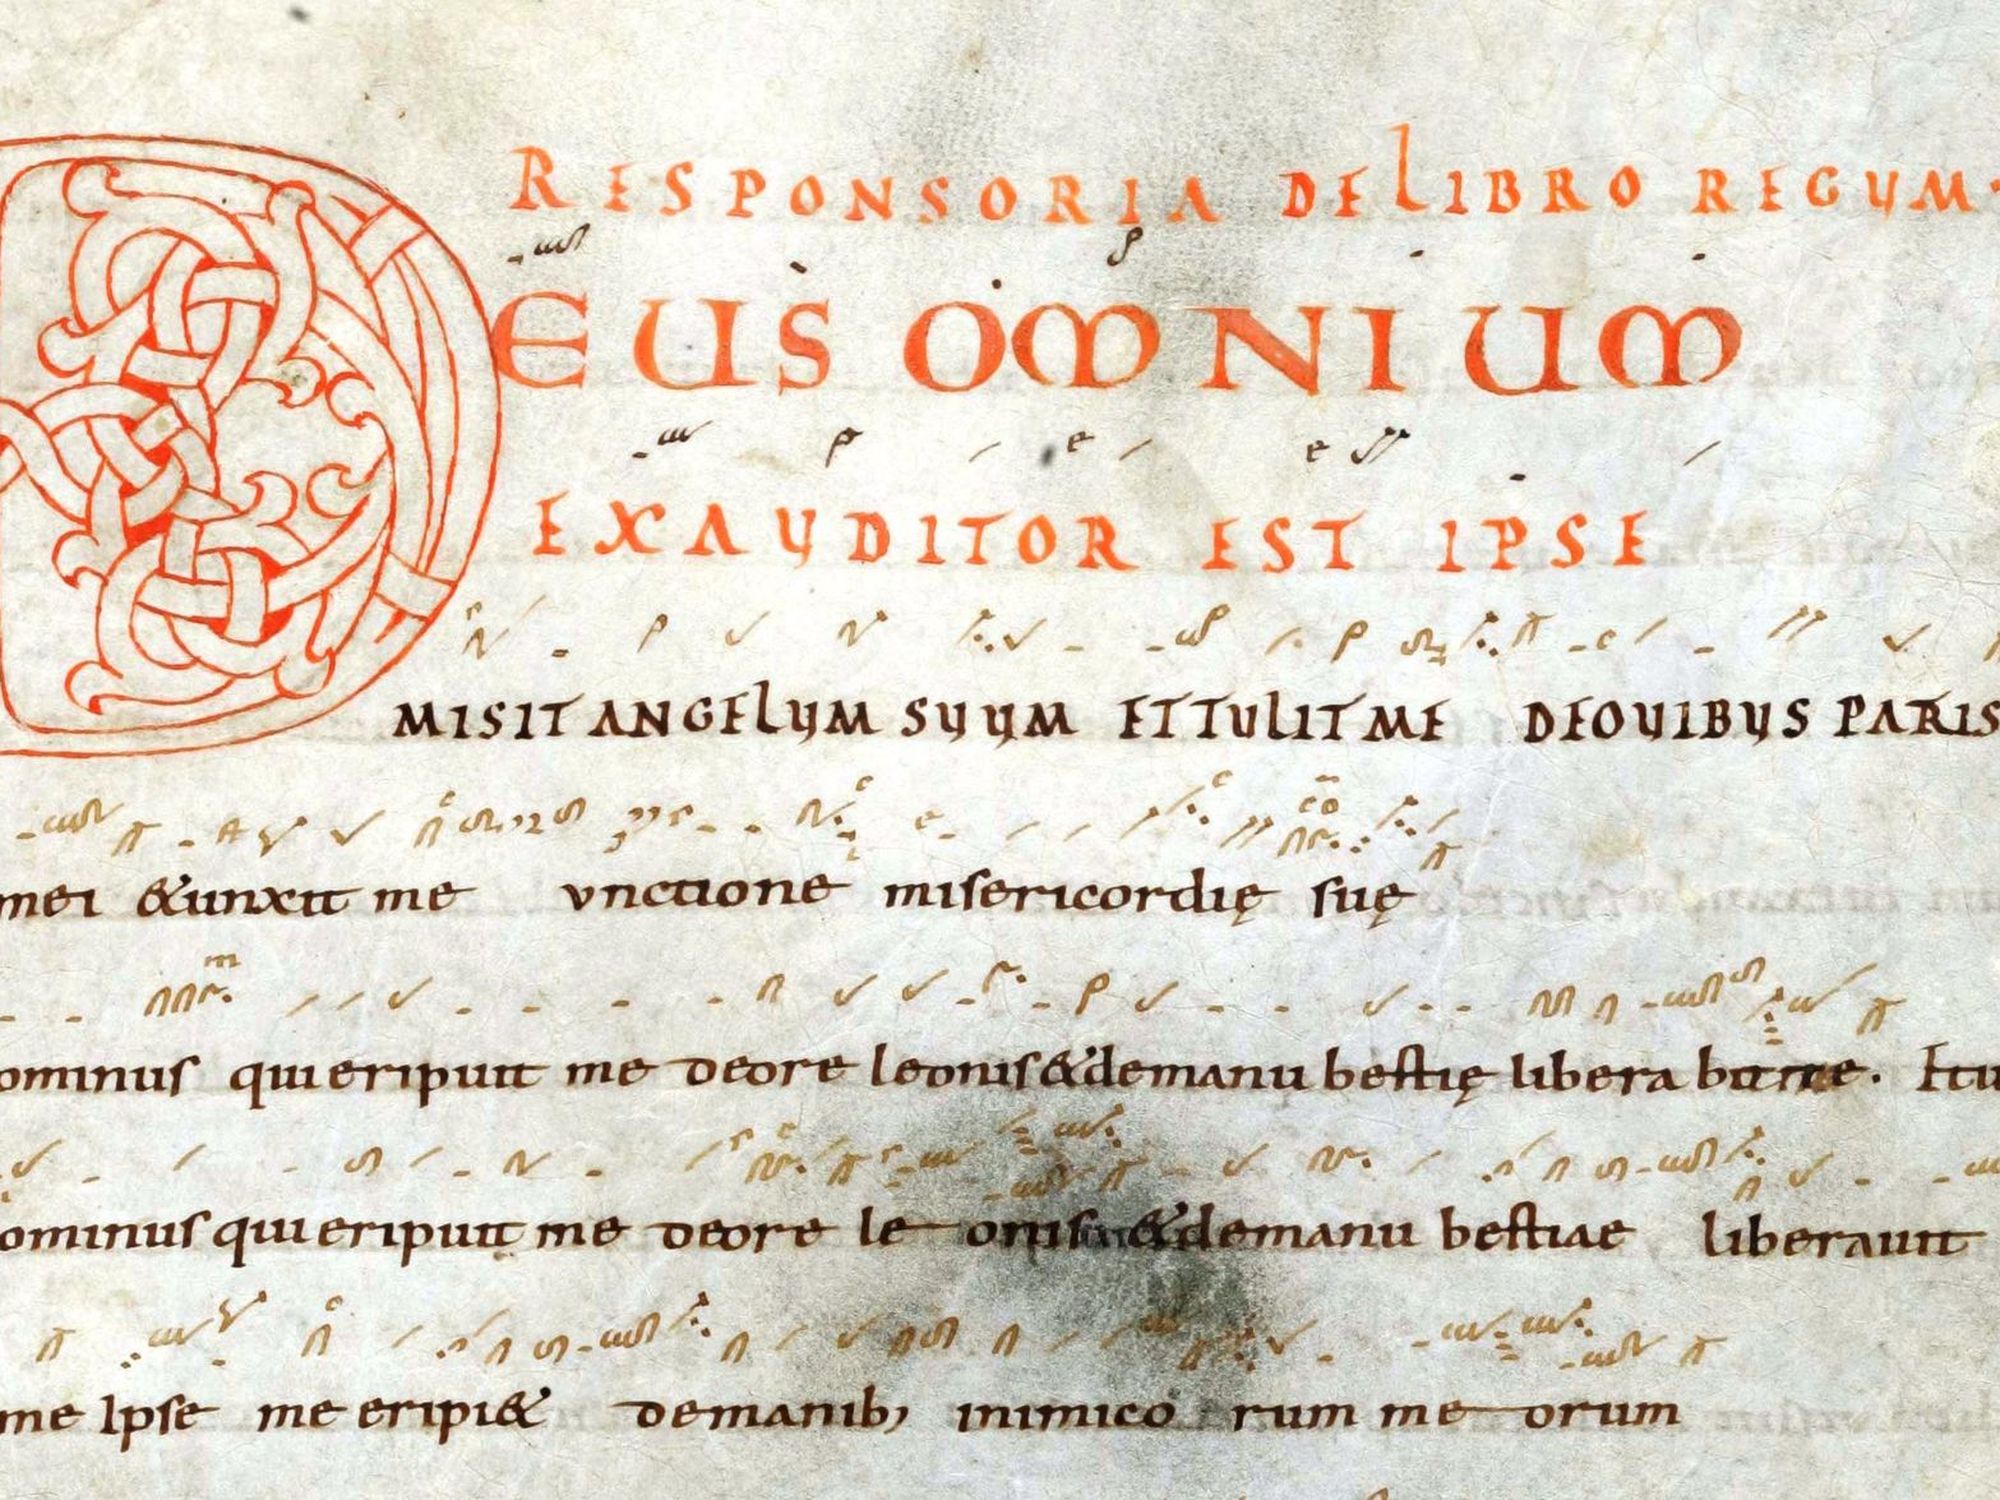 RESPONSORIA DE LIBRO REGUM.
DEUS OMNIUM
EXAUDITOR EST IPSE
MISIT ANGELUM SUUM ET TULIT ME DE OVIBUS PARIS
mei & unxit me unctione misericordię suę
ominus qui eripuit me de ore leonis & de manu bestię libera bit me. Etu
ominus qui eripuit me de ore le onis & de manu bestiae liberauit
me Ipse me eripi& de manib; inimico rum me orum